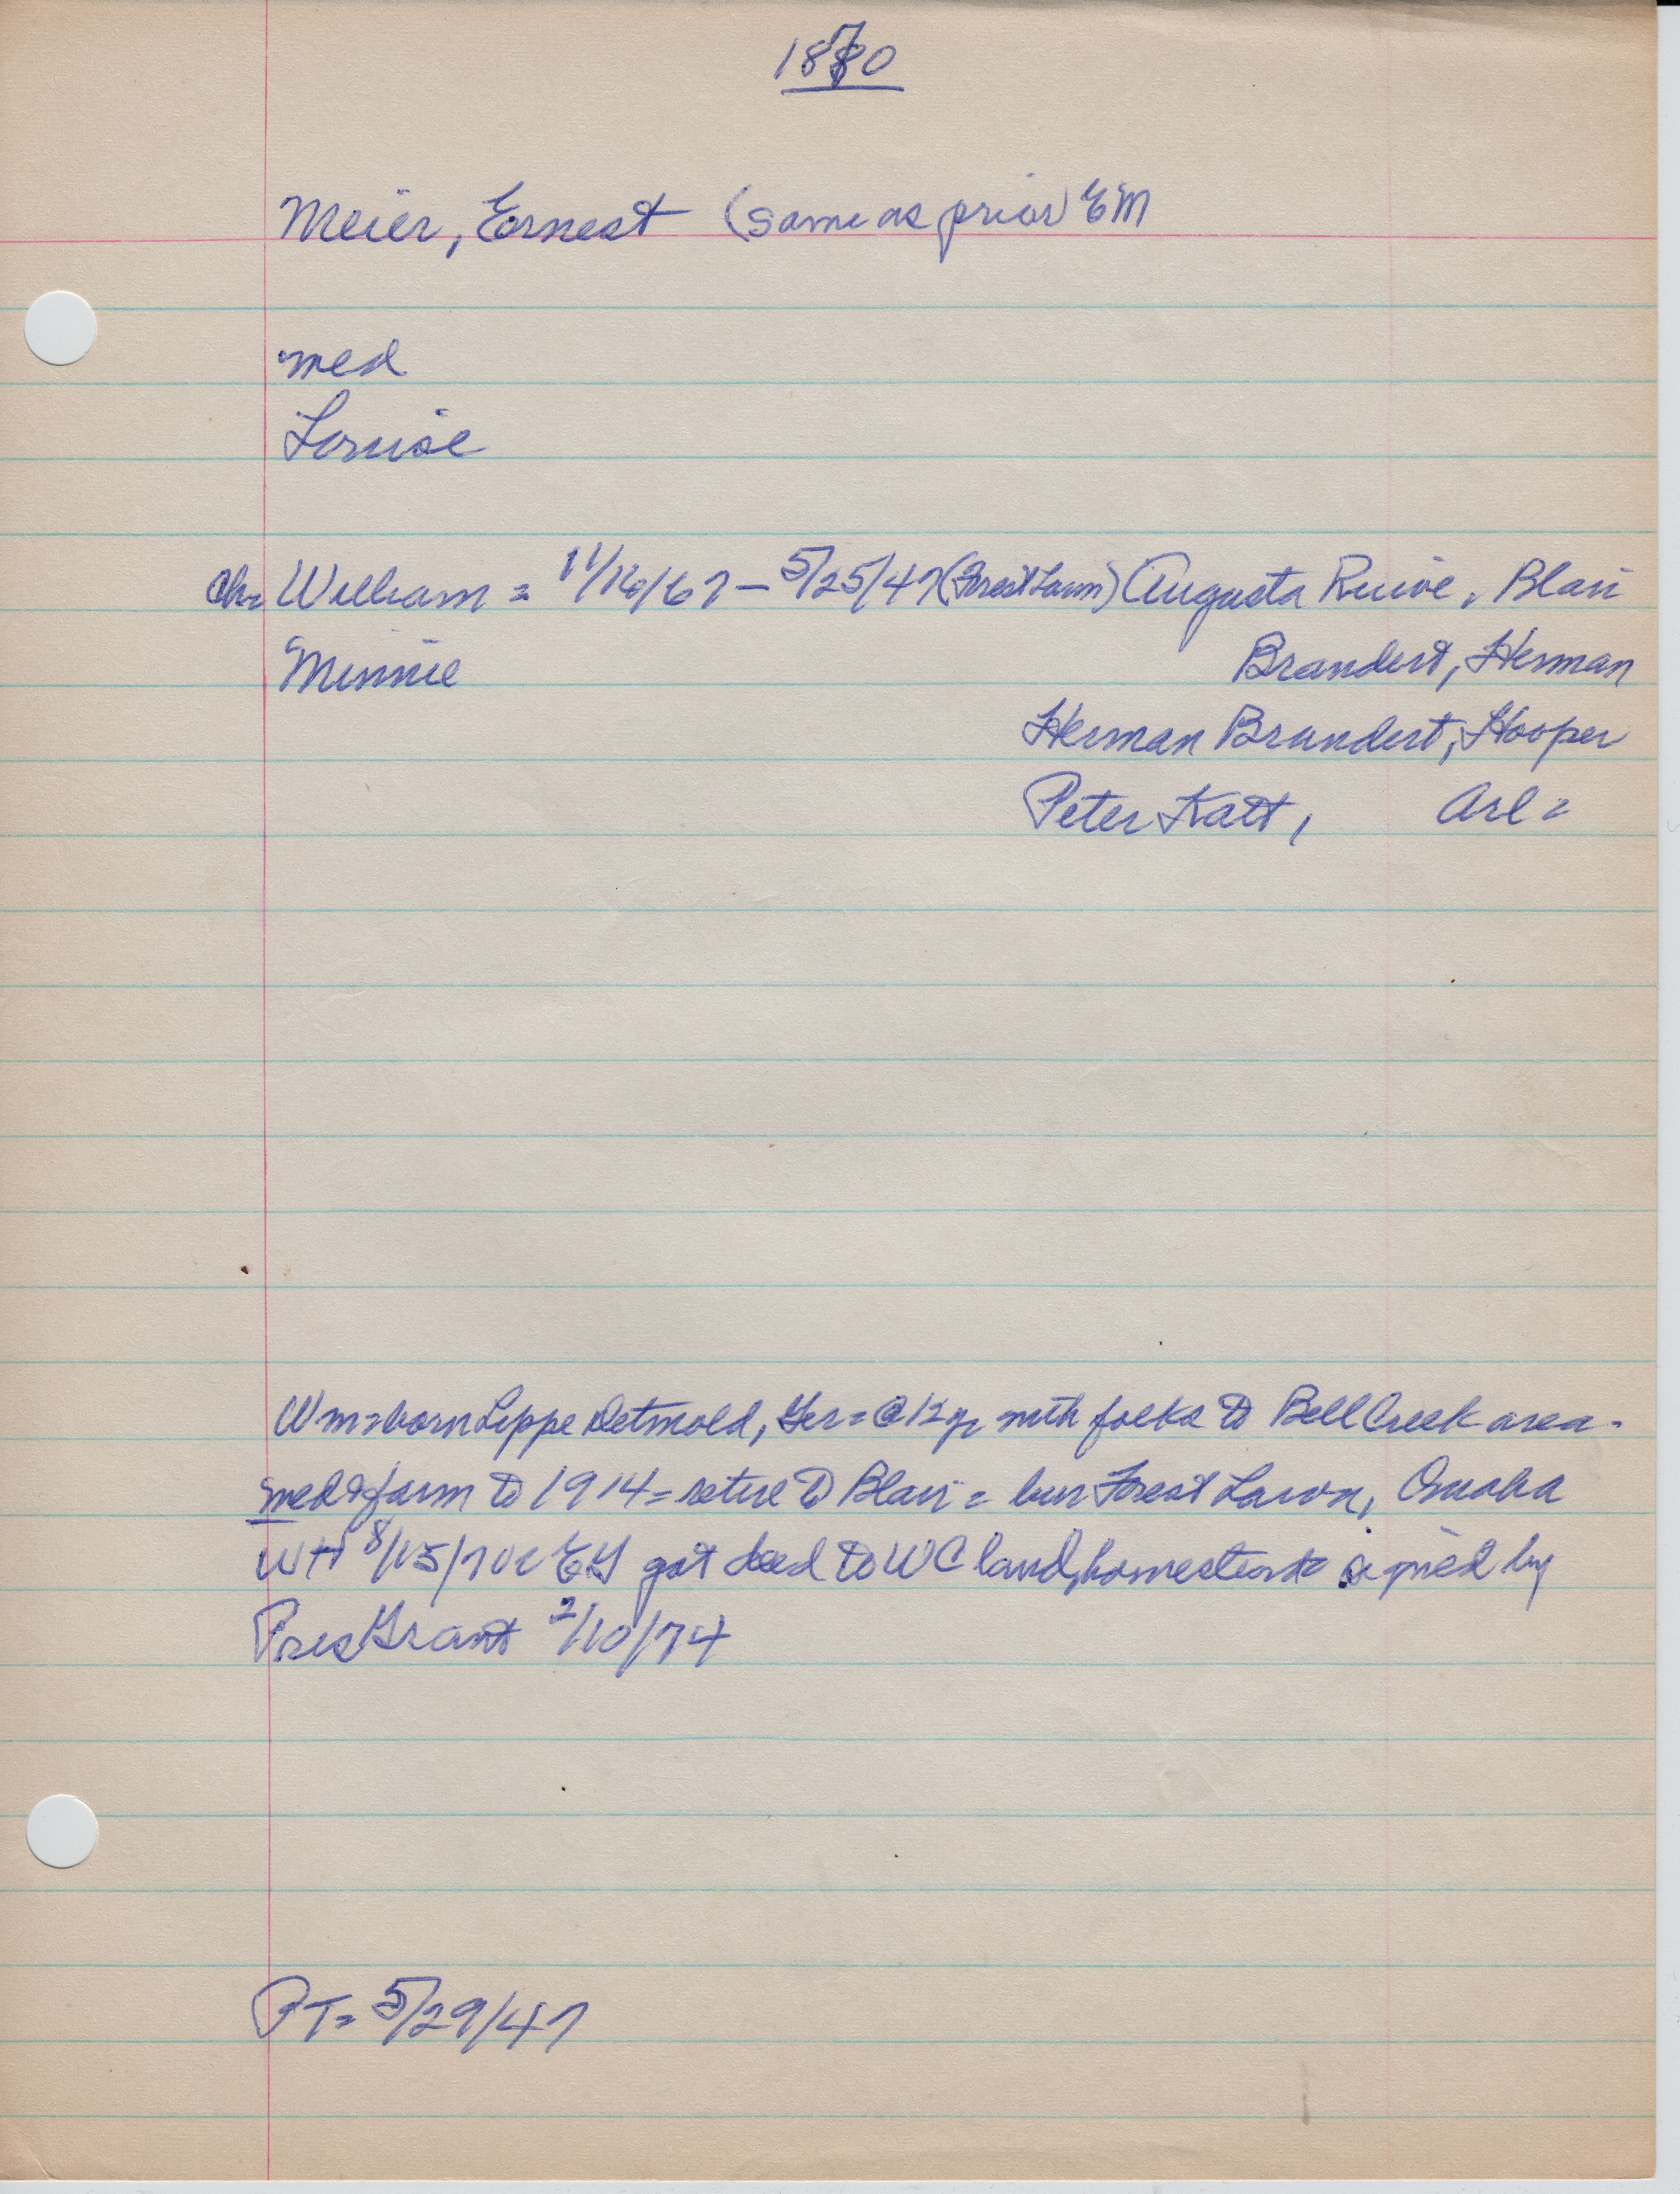 1870
Meier, Ernest (same as prior) EM
med
Louise
Ch= William = 11/16/67 - 5/25/47 (Forest Lawn) Augusta Ruwe, Blair
Minnie Brandert, Herman
Herman Brandert, Hooper
Peter Katt, Arl=
Wm=born Lippe Detmold, Ger=@12yr with folks to Bell Creek area-
med & farm to 1914=retire to Blair = bur Forest Lawn, Omaha
WH 8/15/70 got deed to WC land, homestead signed by
Pres Grant 2/10/74
PT= 5/29/47